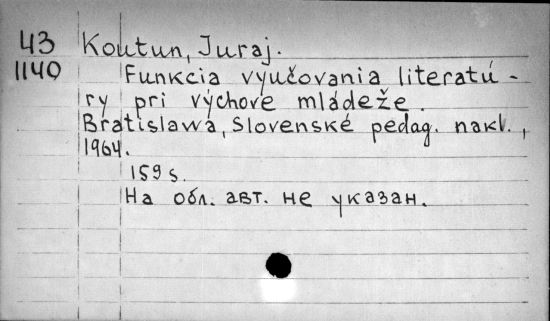 43 Koutun, Juraj.
1140 Funkcia vyučovania literatú-
ry pri výchove mládeže.
Bratislawa, Slovenské pedag. nakl.,
1964.
159 s.
На обл. авт. не указан.